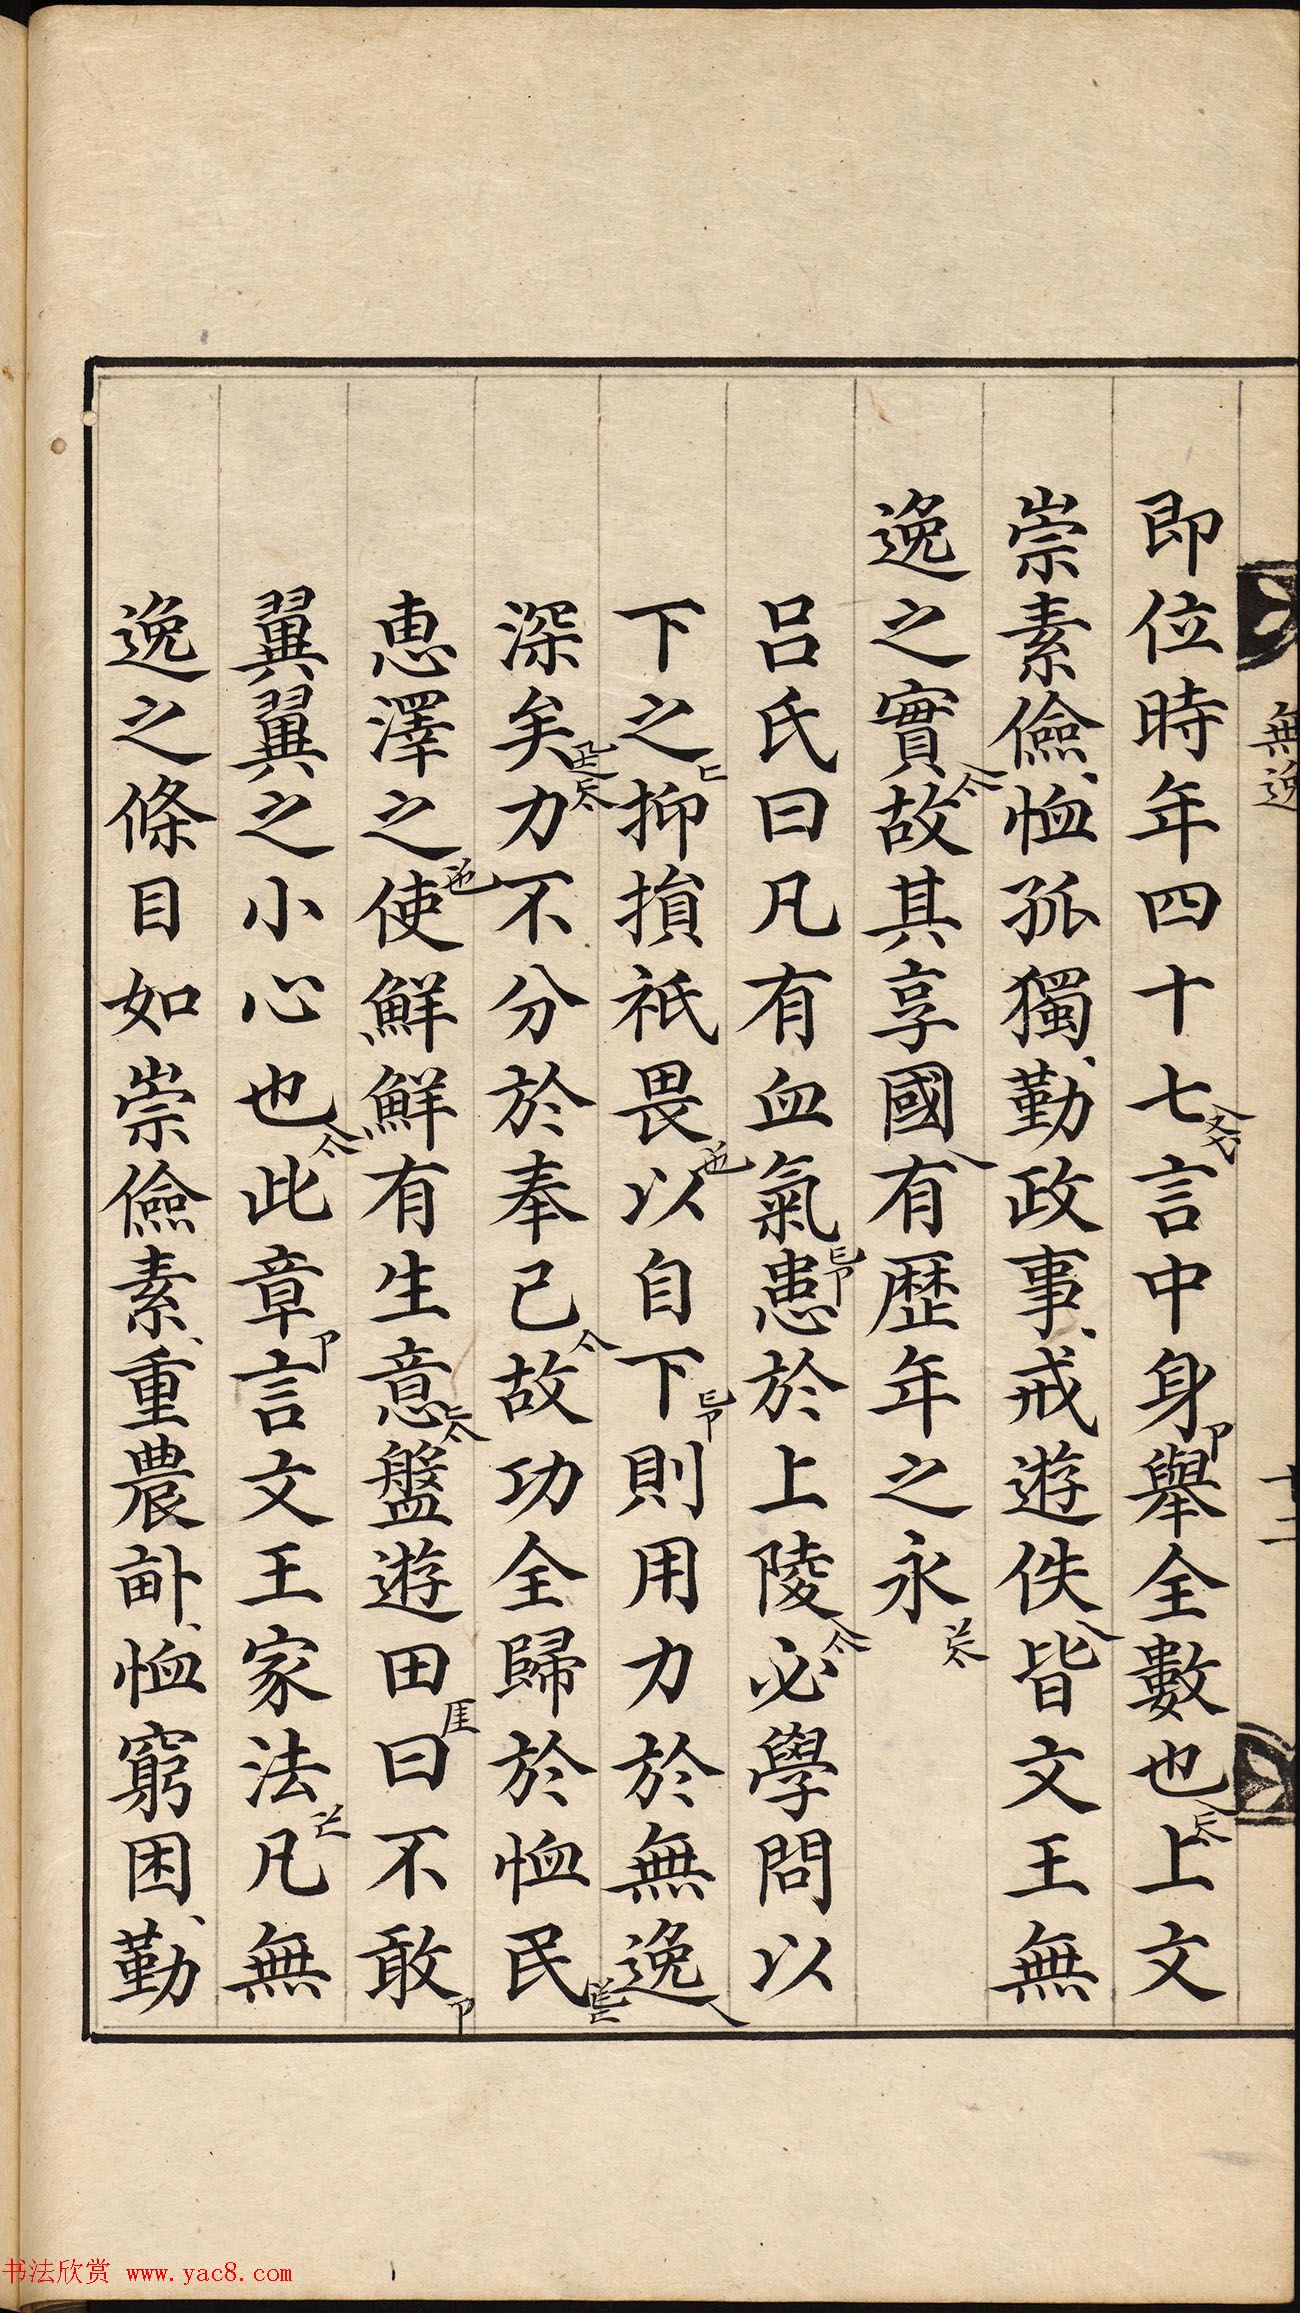 無逸
十二
即位時年四十七言中身舉全數也上文
崇素儉恤孤獨勤政事戒遊佚皆文王無
逸之實故其享國有歷年之永
呂氏曰凡有血氣患於上陵必學問以
下之抑損祇畏以自下則用力於無逸
深矣力不分於奉己故功全歸於恤民
惠澤之使鮮鮮有生意盤遊田曰不敢
翼翼之小心也此章言文王家法凡無
逸之條目如崇儉素重農畝恤窮困勤
书法欣赏 www.yac8.com